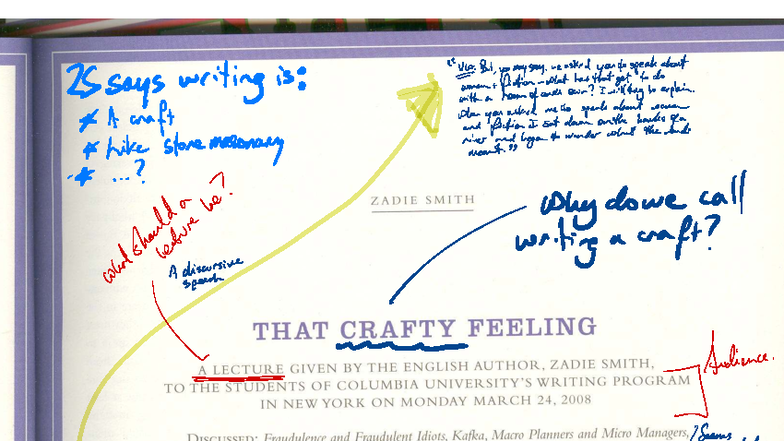 ZS says writing is:
* A craft
* Like stone masonary
* ...?
"VW: But, you may say, we asked you to speak about
women & fiction – what has that got to do
with a room of one's own? I will try to explain.
When you asked me to speak about women
and fiction I sat down on the banks of a
river and began to wonder what the words
meant."
ZADIE SMITH
Why do we call
writing a craft?
What should a
lecture be?
A discursive
speech
THAT CRAFTY FEELING
A LECTURE GIVEN BY THE ENGLISH AUTHOR, ZADIE SMITH,
TO THE STUDENTS OF COLUMBIA UNIVERSITY'S WRITING PROGRAM
IN NEW YORK ON MONDAY MARCH 24, 2008
Audience.
DISCUSSED: Fraudulence and Fraudulent Idiots, Kafka, Macro Planners and Micro Managers,
? Seems